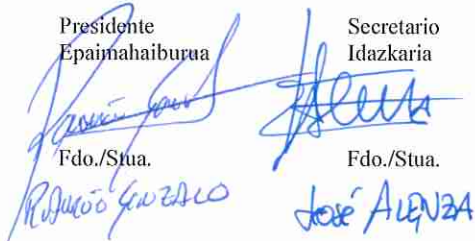 Presidente
Epaimahaiburua
Fdo./Stua.
GONZALO
Secretario
Idazkaria
Fdo./Stua.
JOSÉ ALENZA